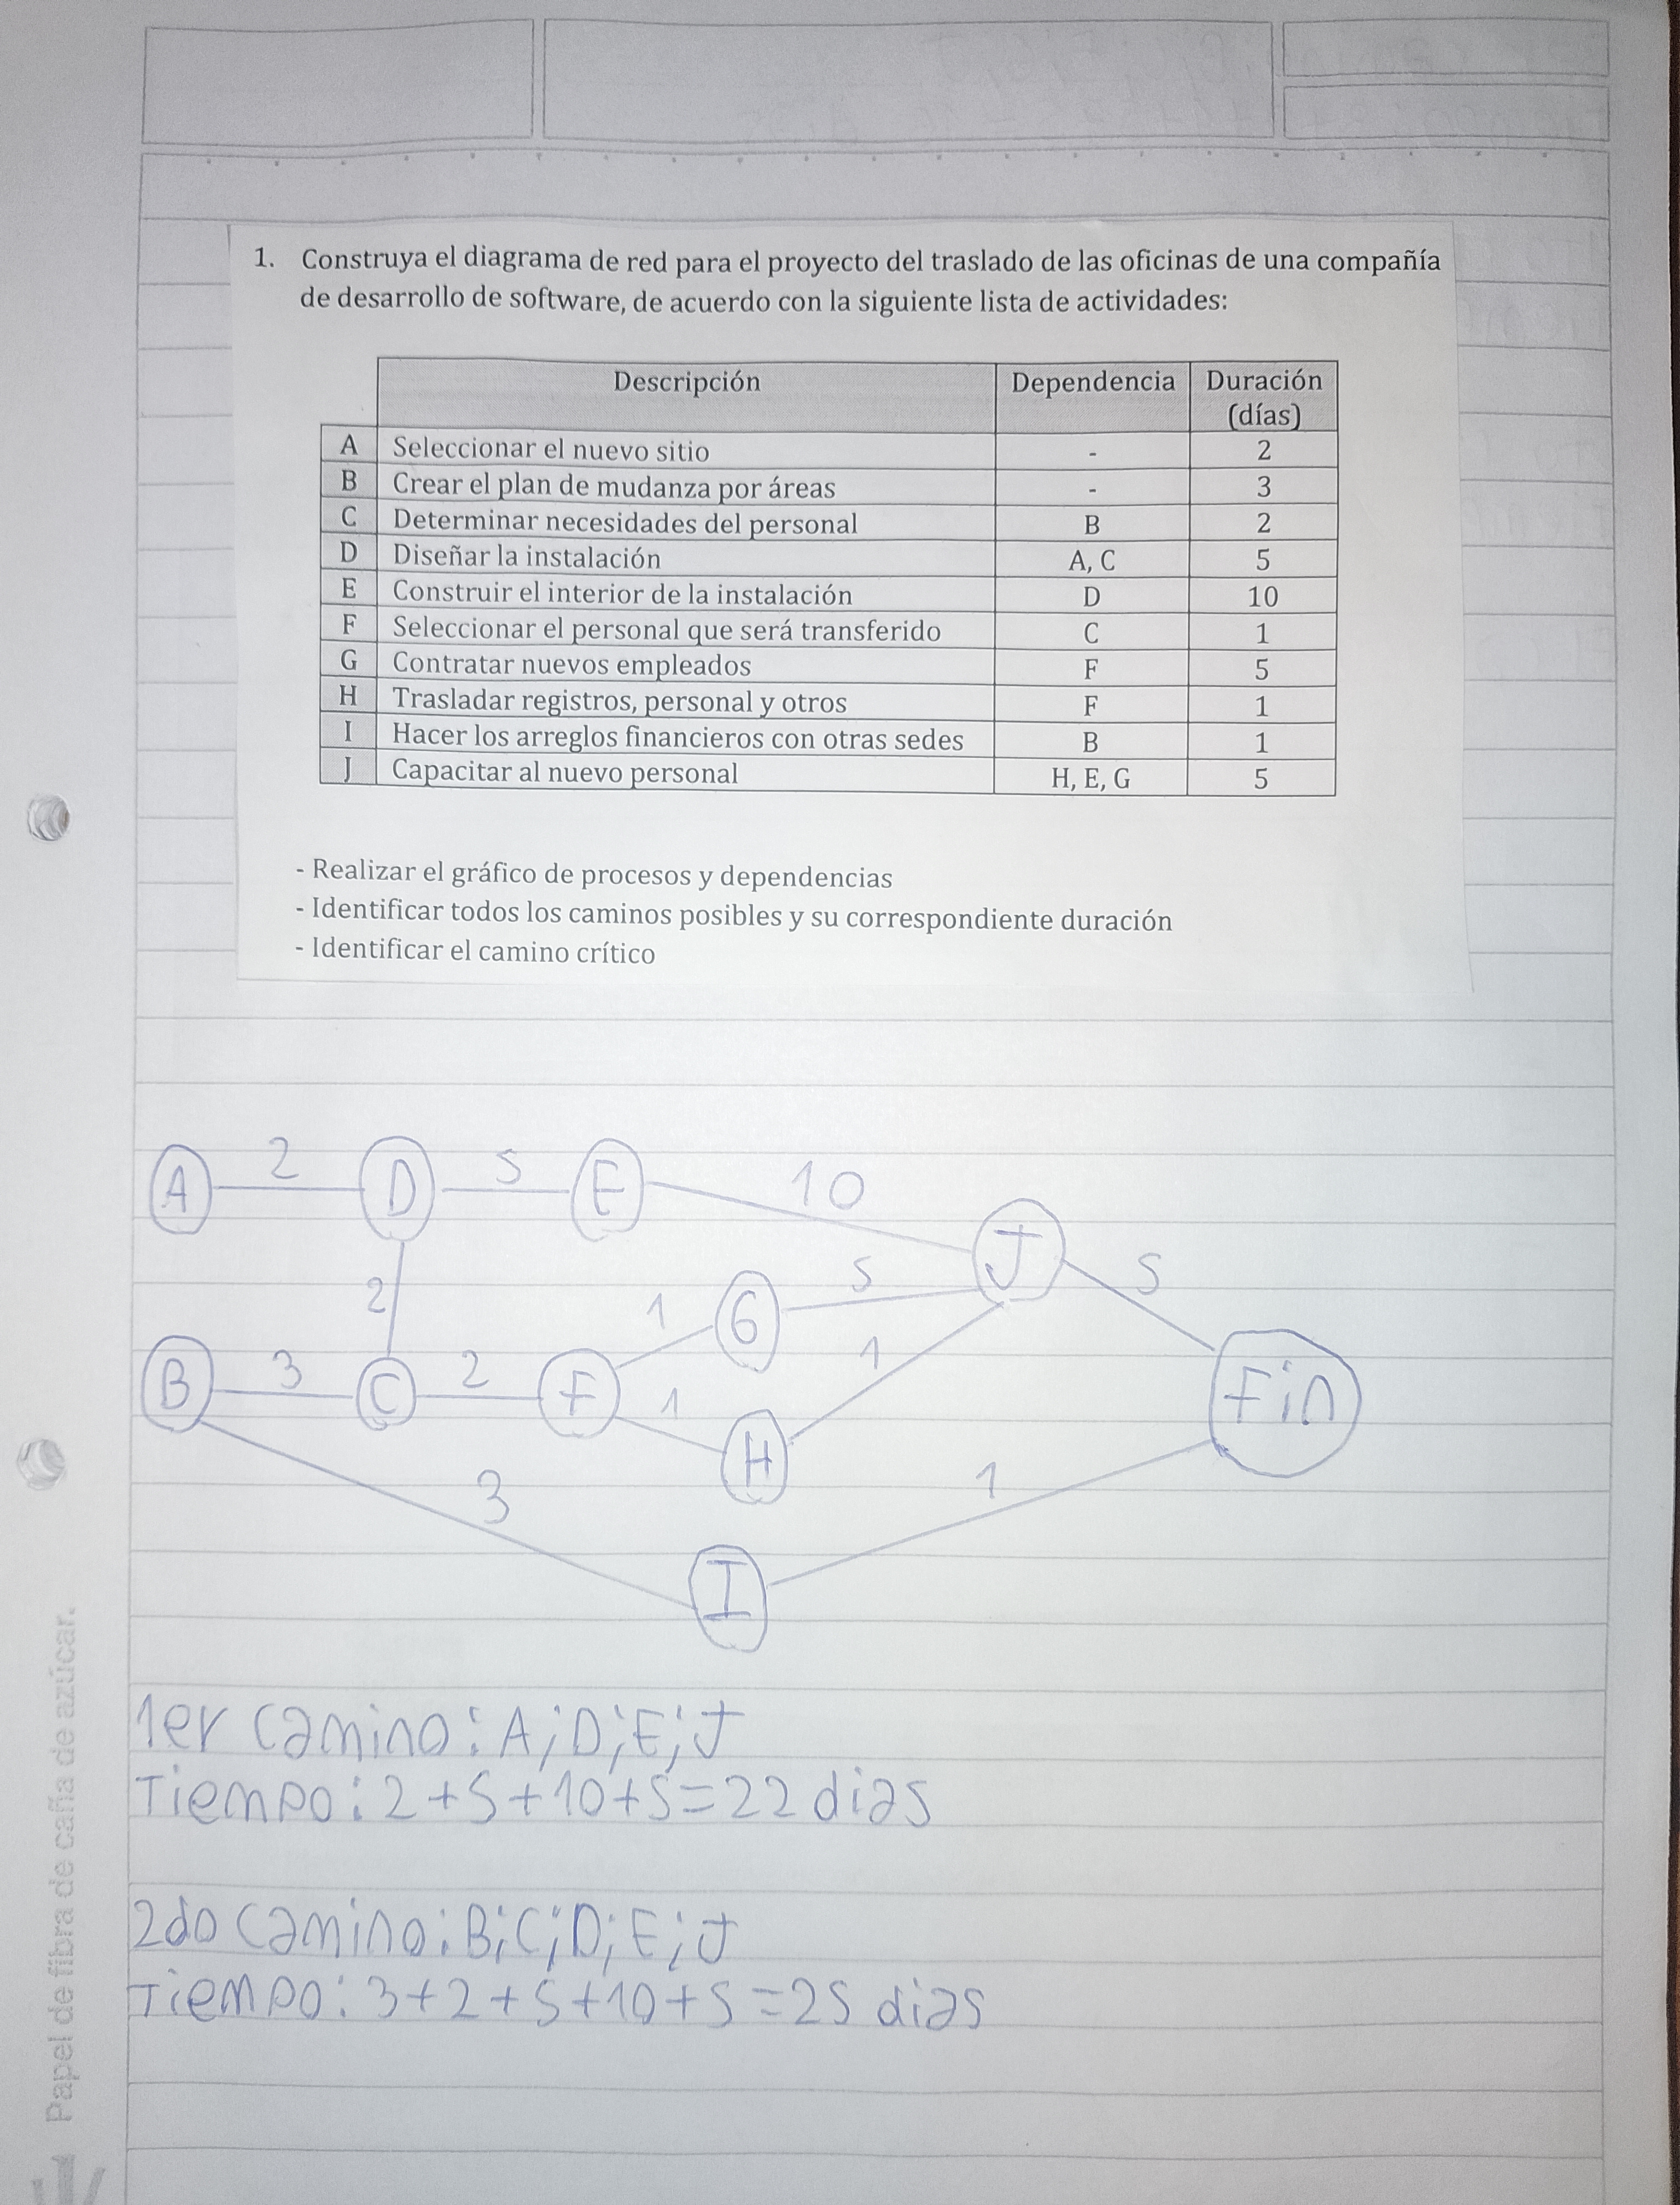 1. Construya el diagrama de red para el proyecto del traslado de las oficinas de una compañía
de desarrollo de software, de acuerdo con la siguiente lista de actividades:
Descripción Dependencia Duración
(días)
A Seleccionar el nuevo sitio - 2
B Crear el plan de mudanza por áreas - 3
C Determinar necesidades del personal B 2
D Diseñar la instalación A, C 5
E Construir el interior de la instalación D 10
F Seleccionar el personal que será transferido C 1
G Contratar nuevos empleados F 5
H Trasladar registros, personal y otros F 1
I Hacer los arreglos financieros con otras sedes B 1
J Capacitar al nuevo personal H, E, G 5
- Realizar el gráfico de procesos y dependencias
- Identificar todos los caminos posibles y su correspondiente duración
- Identificar el camino crítico
A 2 D 5 E 10 J 5
2 1 G 5
B 3 C 2 F 1 H 1 Fin
3 I 1
1er camino: A;D;E;J
Tiempo: 2+5+10+5=22 dias
2do camino: B;C;D;E;J
Tiempo: 3+2+5+10+5=25 dias
Papel de fibra de caña de azúcar.